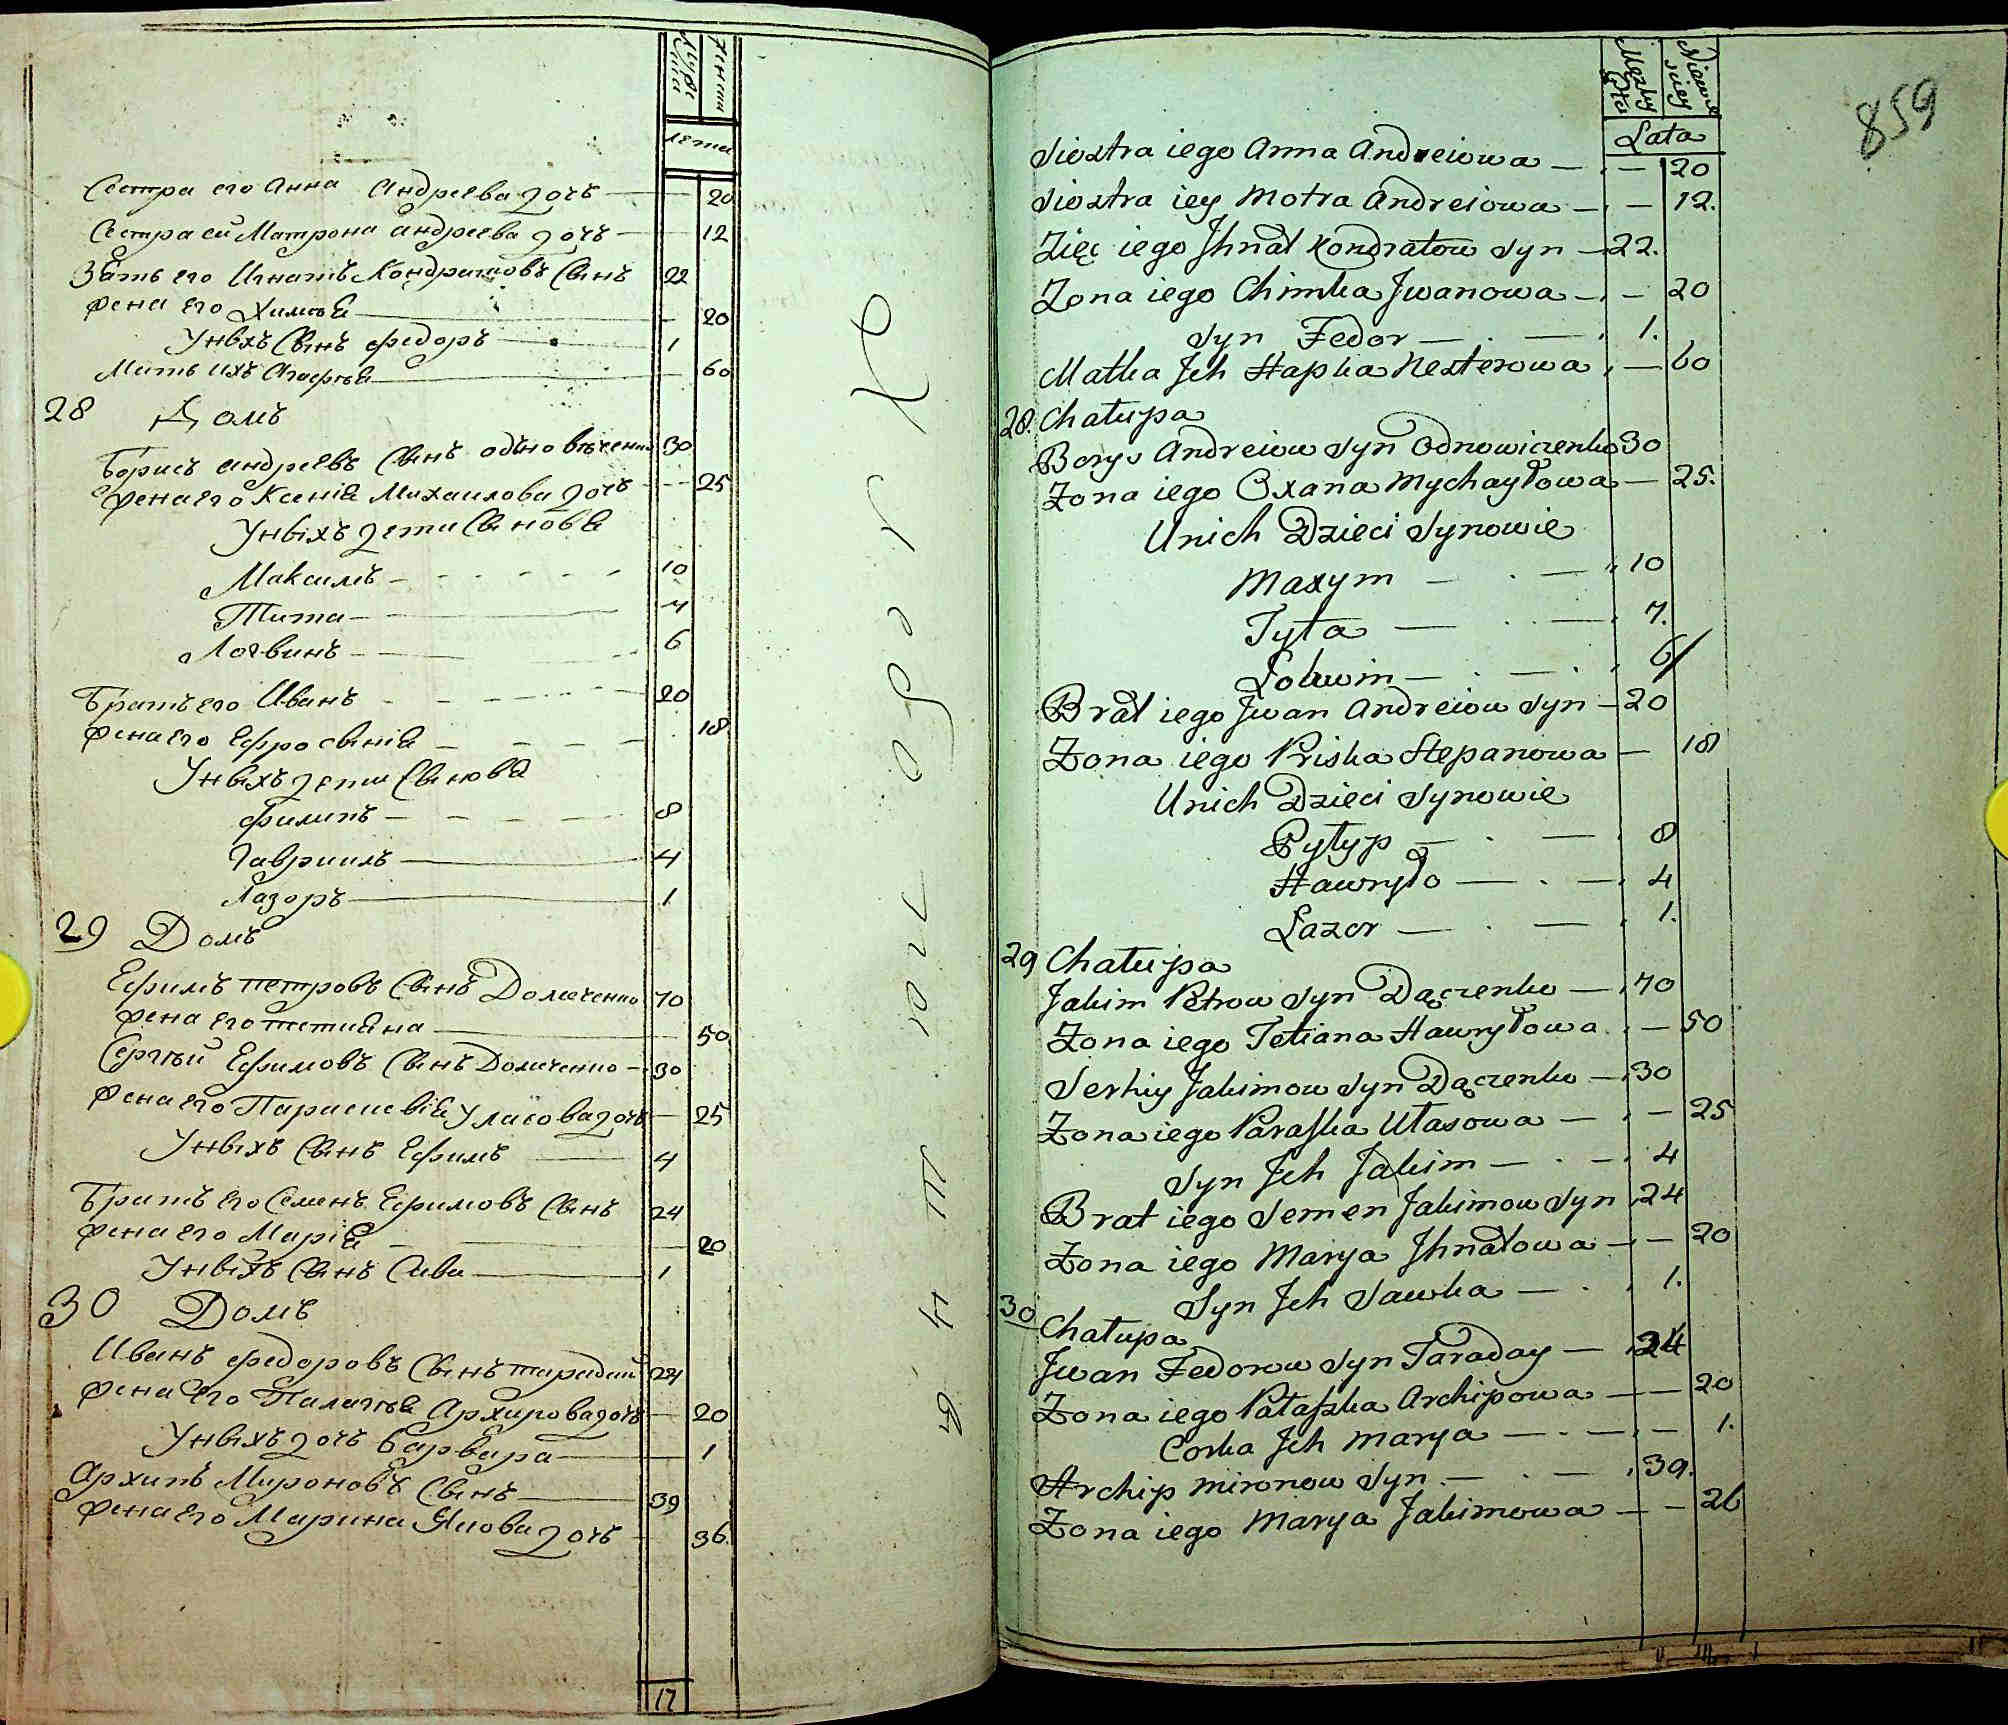 Мужс
ска
Женски
лета
Сестра его Анна Андреева дочь — 20
Сестра ей Матрона Андреева дочь — 12
Зять его Игнатъ Кондратовъ Сынъ 22
Жена его Химія — 20
У ныхъ Сынъ Федоръ — 1
Мать ихъ Агафія — 60
28 Домъ
Борисъ Андреевъ Сынъ 30
Жена его Ксенія Михаилова дочь — 25
У ныхъ дети Сыновя
Максимъ — 10
Тита — 7
Логвинъ — 6
Братъ его Иванъ — 20
Жена его Ефросинія — 18
У ныхъ дети Сынова
Филипъ — 8
Гавриилъ — 4
Лазоръ — 1
29 Домъ
Ефимъ Петровъ Сынъ 70
Жена его Тетияна — 50
Сергей Ефимовъ Сынъ — 30
Жена его Парасковія Уласова дочь — 25
У ныхъ Сынъ Ефимъ — 4
Братъ его Семенъ Ефимовъ Сынъ 24
Жена его Марія — 20
У ныхъ Сынъ Сава — 1
30 Домъ
Иванъ Федоровъ Сынъ Тарадай 24
Жена его Палагія Архипова дочь — 20
У ныхъ дочь Варвара — 1
Архипъ Мироновъ Сынъ — 39
Жена его Марина дочь — 36
17
859
Męzky
Niewie
sciey
Lata
Siostra iego Anna Andreiowa — 20
Siostra iey Motra Andreiowa — 12.
Zięć iego Jhnat Kondratow Syn — 22.
Zona iego Chimka Jwanowa — 20
Syn Fedor — 1.
Matka Jch Hapka Nesterowa — 60
28. Chałupa
Borys Andreiow Syn Odnowiczenko 30
Zona iego Oxana Mychayłowa — 25.
Unich Dzieci Synowie
Maxym — 10
Tyta — 7.
Lohwin — 6
Brat iego Jwan Andreiow Syn — 20
Zona iego Priska Stepanowa — 18
Unich Dzieci Synowie
Pyłyp — 8
Hawryło — 4
Lazor — 1.
29 Chałupa
Jakim Petrow Syn Dączenko — 70
Zona iego Tetiana Hawryłowa — 50
Serhiy Jakimow Syn Dączenko — 30
Zona iego Paraska Ułasowa — 25
Syn Jch Jakim — 4
Brat iego Semen Jakimow Syn 24
Zona iego Marya Jhnatowa — 20
Syn Jch Sawka — 1.
30 Chałupa
Jwan Fedorow Syn Taraday — 24
Zona iego Pałaszka Archipowa — 20
Corka Jch Marya — 1.
Archip Mironow Syn — 39.
Zona iego Marya Jakimowa — 26